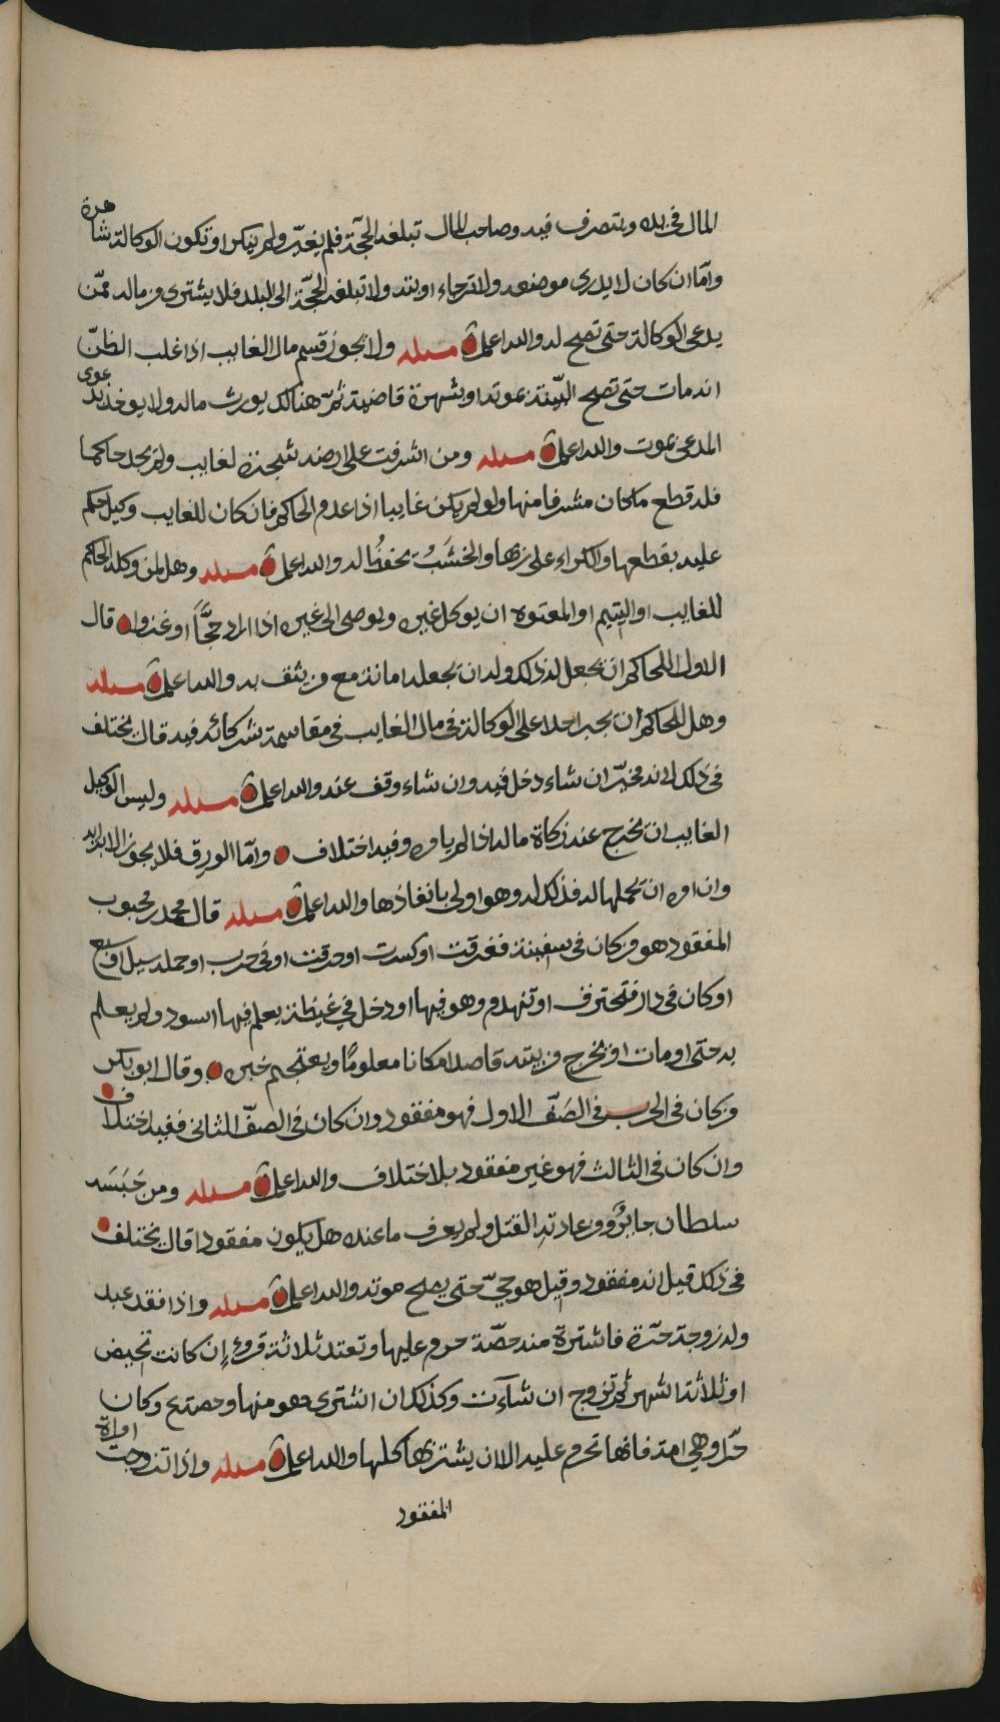 المال في يده ويتصرف فيه وصاحب المال تبلغه الحجة فلم يغير ولم ينكر او تكون الوكالة شاهرة
وأمّا ان كان لا يدرى موضعه ولا ترجاء اوبته ولا تبلغه الحجّة الى البلد فلا يشترى من ماله ممّن
يدعى الوكالة حتى تصح له والله اعلم مسئله ولا يجوز قسم مال الغايب اذا غلب الظنّ
انه مات حتى تصح البيّنة بموته او بشهرة قاضية ثمّ هنالك يورث ماله ولا يوخذ بدعوى
المدعى بموت والله اعلم مسئله ومن اشرفت على ارضه شجرة لغايب ولم يجد حاكما
فله قطع ما كان مشرفا منها ولو لم يكن غايبا اذا عدم الحاكم فان كان للغايب وكيل حكم
عليه بقطعها والكراء على ربها والخشَبُ يحفظُ له والله اعلم مسئله وهل لمن وكله الحاكم
للغايب او اليتيم او المعتوه ان يوكل غيره ويوصى الى غيره اذا اراد حجًّا او غزوا قال
الاول للحاكم ان يجعل له ذلك وله ان يجعلها امانة مع من يثق به والله اعلم مسئله
وهل للحاكم ان يجبر احدا على الوكالة في مال الغايب في مقاسمة شركائه فيه قال يختلف
في ذلك لانه مخيّر ان شاء دخل فيه وان شاء وقف عنه والله اعلم مسئله وليس لوكيل
الغايب ان يخرج عنه زكاة ماله اذا لم يامره وفيه اختلاف وأمّا الورق فلا يجوز الا برايه
وان امره ان يحملها له فذلك له وهو اولى بانفاذها والله اعلم مسئله قال محمد بن محبوب
المفقود هو من كان في سفينة فغرقت او كسرت او حرقت او في حرب او حمله سيل او سبع
او كان في دار فتحترق او تنهدم وهو فيها او دخل في غيظة يعلم فيها اسود ولم يعلم
به حتى او مات او يخرج من بيته قاصدا مكانا معلومًا ويعتجم خبره وقال ابو بكر
من كان في الحرب في الصَفّ الاول فهو مفقود وان كان في الصفّ الثاني ففيه اختلاف
وان كان في الثالث فهو غير مفقود بلا اختلاف والله اعلم مسئله ومن حَبَسَه
سلطان جائرٌ ومن عادته القتل ولم يعرف ما عنده هل يكون مفقودا قال يختلف
في ذلك قيل انه مفقود وقيل هو حيّ حتى يصح موته والله اعلم مسئله واذا فقد عبد
وله زوجة حرّة فاشترة منه حصّة حرم عليها وتعتد ثلاثة قروءٍ إن كانت تحيض
او ثلاثة اشهر ثم تزوج ان شآءت وكذلك ان اشترى هو منها وحصته وكان
حّرا وهي امة فانها تحرم عليه الا ان يشتريها كلها والله اعلم مسئله واذا تزوجت امراة
المفقود